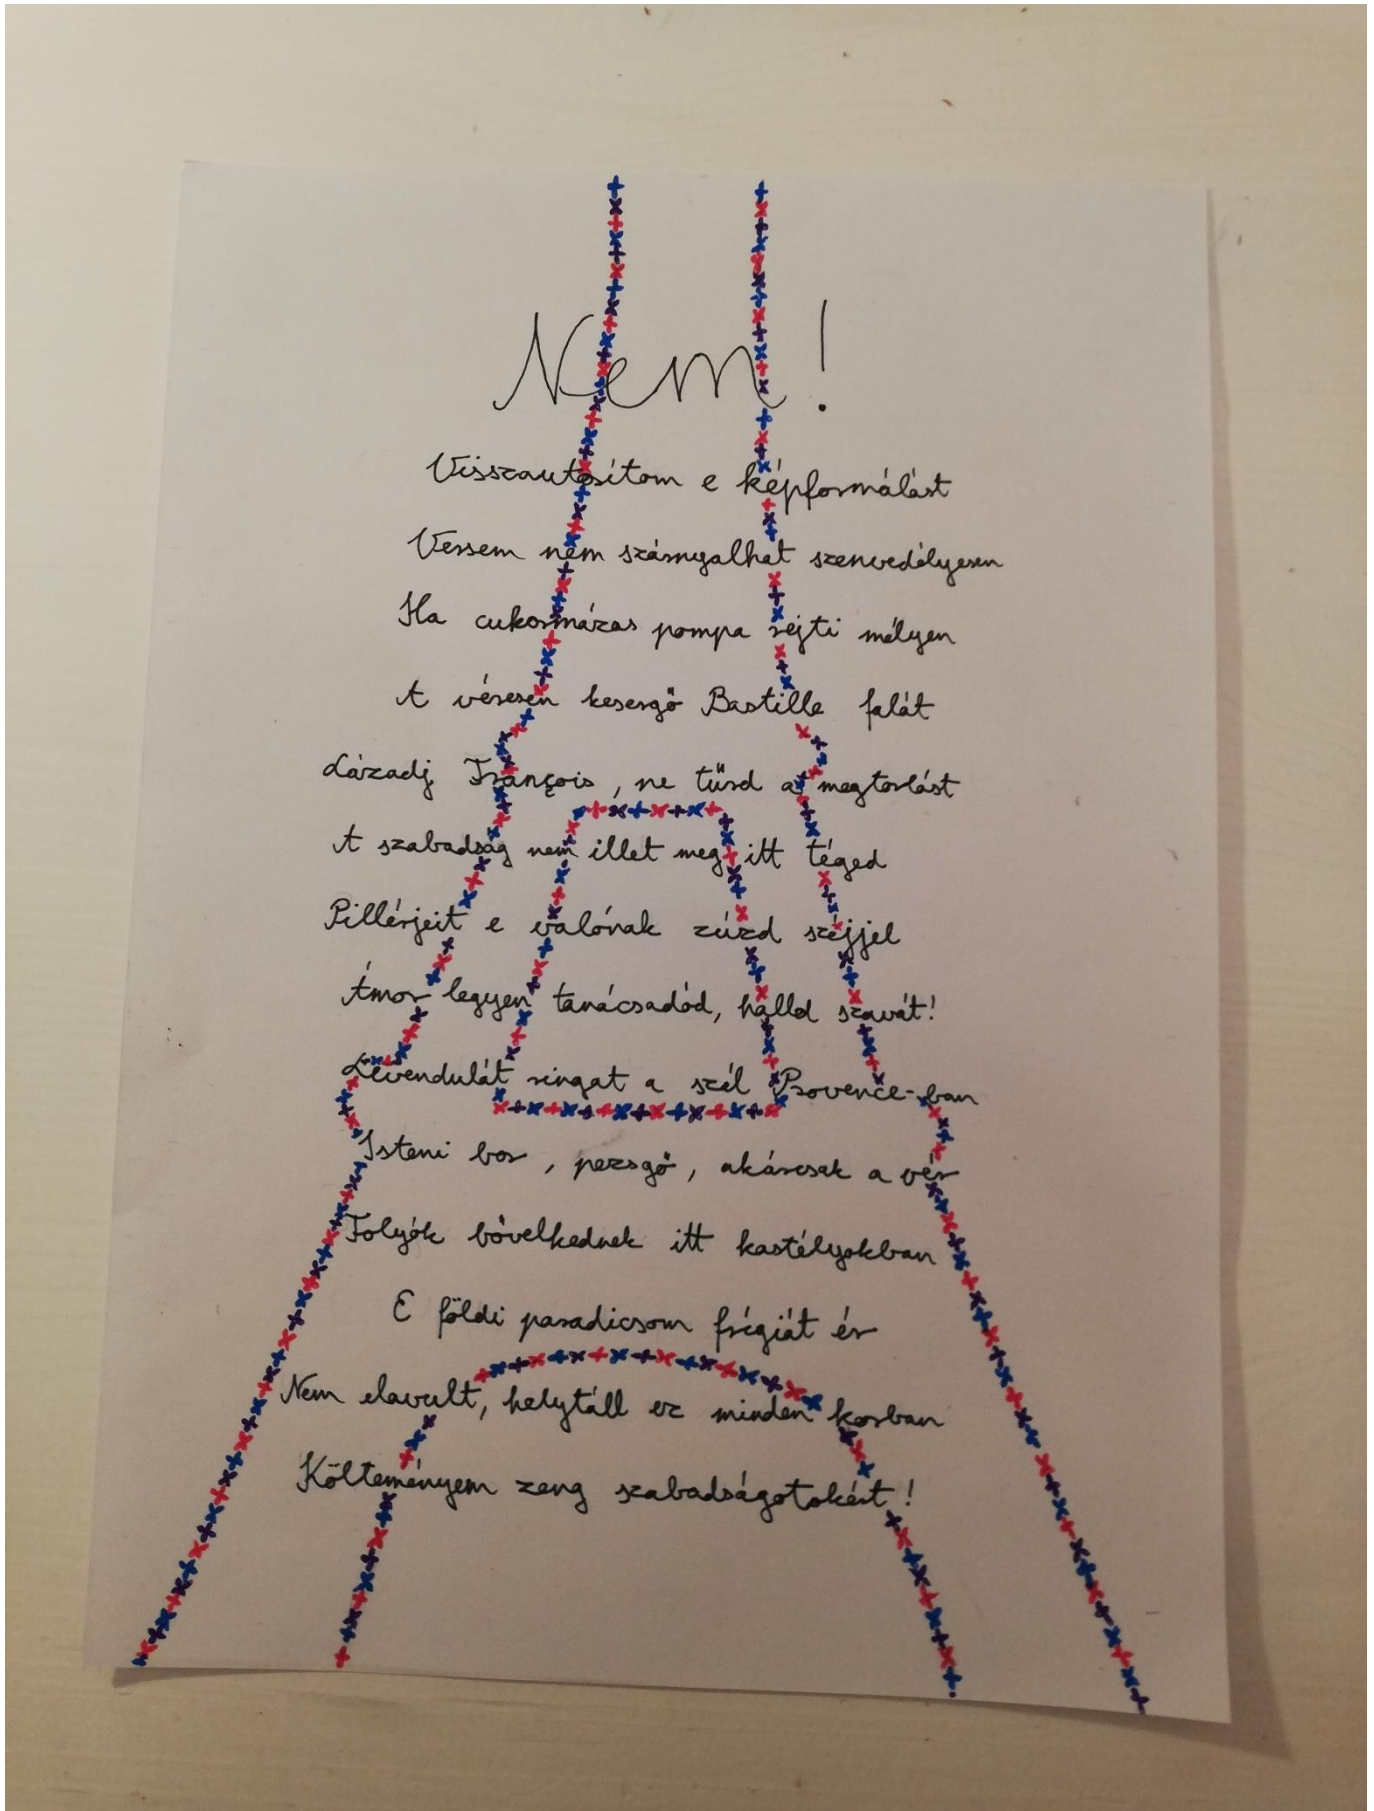 Nem!
Visszautasítom e képformálást
Versem nem szárnyalhat szenvedélyesen
Ha cukormázas pompa rejti mélyen
A véresen kesergő Bastille falát
Lázadj François, ne tűrd a megtorlást
A szabadság nem illet meg itt téged
Pillérjeit e valónak zúzd széjjel
Ámor legyen tanácsadód, halld szavát!
Levendulát ringat a szél Provence-ban
Isteni bor, pezsgő, akárcsak a vér
Folyók bővelkednek itt kastélyokban
E földi paradicsom frígiát ér
Nem elavult, helytáll ez minden korban
Költeményem zeng szabadságotokért!